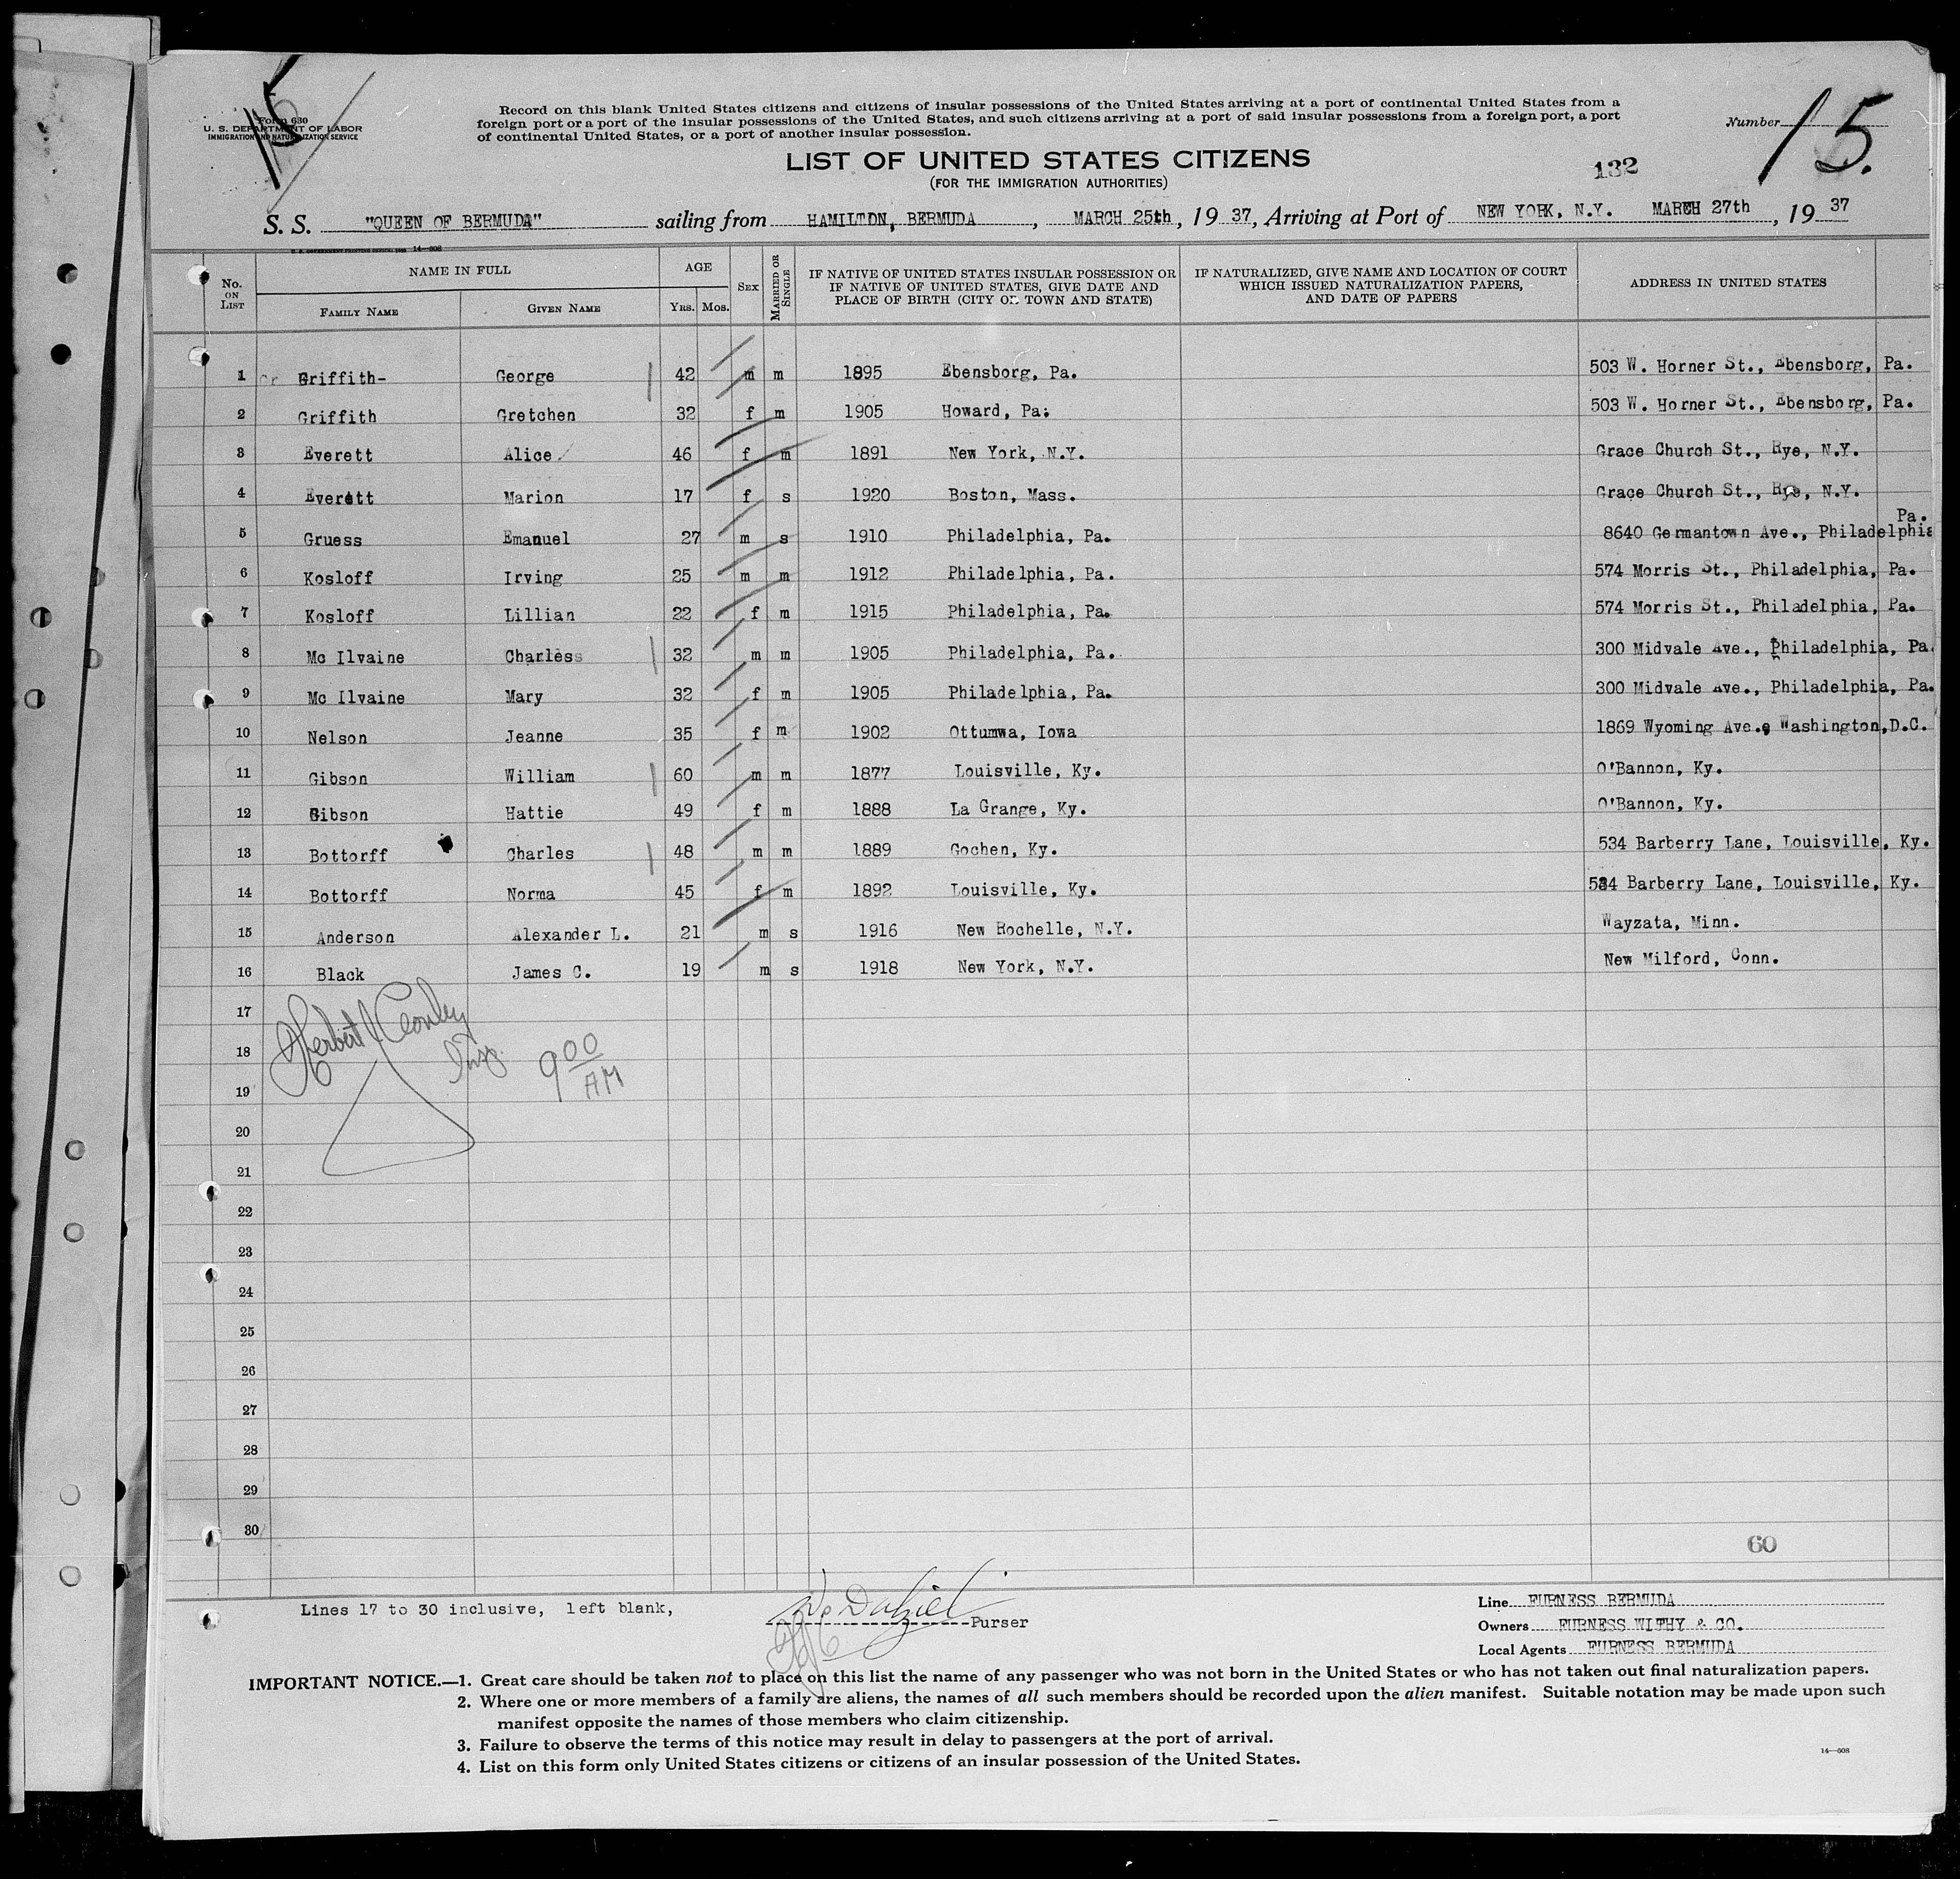 Form 630
U. S. DEPARTMENT OF LABOR
IMMIGRATION AND NATURALIZATION SERVICE
Record on this blank United States citizens and citizens of insular possessions of the United States arriving at a port of continental United States from a
foreign port or a port of the insular possessions of the United States, and such citizens arriving at a port of said insular possessions from a foreign port, a port
of continental United States, or a port of another insular possession.
Number 15.
LIST OF UNITED STATES CITIZENS
(FOR THE IMMIGRATION AUTHORITIES)
132
S. S. "QUEEN OF BERMUDA" sailing from HAMILTON, BERMUDA, MARCH 25th, 1937, Arriving at Port of NEW YORK, N.Y. MARCH 27th, 1937
14—608
No. ON LIST NAME IN FULL FAMILY NAME GIVEN NAME AGE YRS. MOS. SEX MARRIED OR SINGLE IF NATIVE OF UNITED STATES INSULAR POSSESSION OR IF NATIVE OF UNITED STATES, GIVE DATE AND PLACE OF BIRTH (CITY OR TOWN AND STATE) IF NATURALIZED, GIVE NAME AND LOCATION OF COURT WHICH ISSUED NATURALIZATION PAPERS, AND DATE OF PAPERS ADDRESS IN UNITED STATES
1 Griffith- George 42 m m 1895 Ebensborg, Pa. 503 W. Horner St., Ebensborg, Pa.
2 Griffith Gretchen 32 f m 1905 Howard, Pa. 503 W. Horner St., Ebensborg, Pa.
3 Everett Alice 46 f m 1891 New York, N.Y. Grace Church St., Rye, N.Y.
4 Everett Marion 17 f s 1920 Boston, Mass. Grace Church St., Rye, N.Y.
5 Gruess Emanuel 27 m s 1910 Philadelphia, Pa. 8640 Germantown Ave., Philadelphia Pa.
6 Kosloff Irving 25 m m 1912 Philadelphia, Pa. 574 Morris St., Philadelphia, Pa.
7 Kosloff Lillian 22 f m 1915 Philadelphia, Pa. 574 Morris St., Philadelphia, Pa.
8 Mc Ilvaine Charles 32 m m 1905 Philadelphia, Pa. 300 Midvale Ave., Philadelphia, Pa.
9 Mc Ilvaine Mary 32 f m 1905 Philadelphia, Pa. 300 Midvale Ave., Philadelphia, Pa.
10 Nelson Jeanne 35 f m 1902 Ottumwa, Iowa 1869 Wyoming Ave., Washington,D.C.
11 Gibson William 60 m m 1877 Louisville, Ky. O'Bannon, Ky.
12 Gibson Hattie 49 f m 1888 La Grange, Ky. O'Bannon, Ky.
13 Bottorff Charles 48 m m 1889 Gochen, Ky. 534 Barberry Lane, Louisville, Ky.
14 Bottorff Norma 45 f m 1892 Louisville, Ky. 534 Barberry Lane, Louisville, Ky.
15 Anderson Alexander L. 21 m s 1916 New Rochelle, N.Y. Wayzata, Minn.
16 Black James C. 19 m s 1918 New York, N.Y. New Milford, Conn.
17
18
19
20
21
22
23
24
25
26
27
28
29
30
Herbert
9 00 AM
60
Lines 17 to 30 inclusive, left blank,
Purser
Line FURNESS BERMUDA
Owners FURNESS WITHY & CO.
Local Agents FURNESS BERMUDA
IMPORTANT NOTICE.—1. Great care should be taken not to place on this list the name of any passenger who was not born in the United States or who has not taken out final naturalization papers.
2. Where one or more members of a family are aliens, the names of all such members should be recorded upon the alien manifest. Suitable notation may be made upon such
manifest opposite the names of those members who claim citizenship.
3. Failure to observe the terms of this notice may result in delay to passengers at the port of arrival.
4. List on this form only United States citizens or citizens of an insular possession of the United States.
14—608